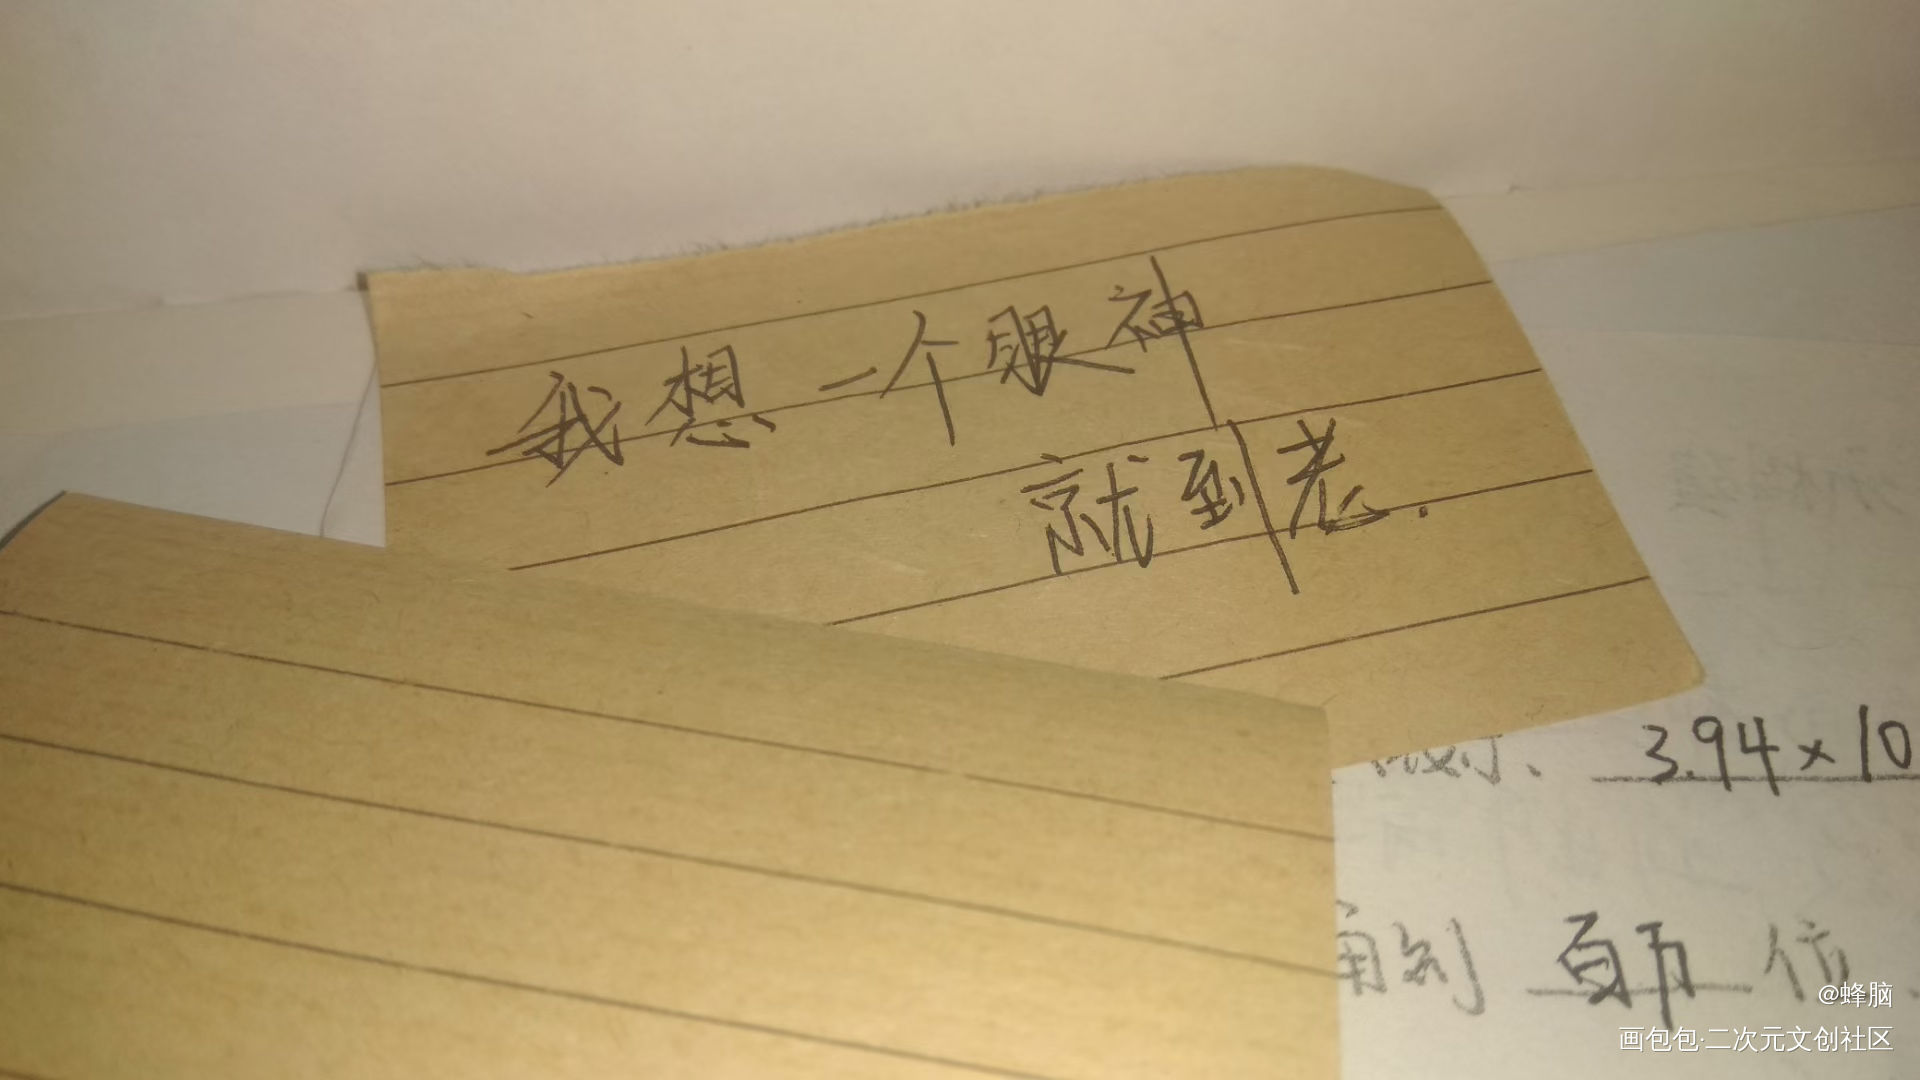 我想一个眼神
就到老.
3.94×10
百万位
@蜂脑
画包包·二次元文创社区